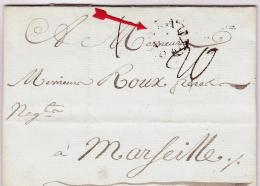 A Messieurs
Messieurs Roux freres
Neg.ts
à Marseille